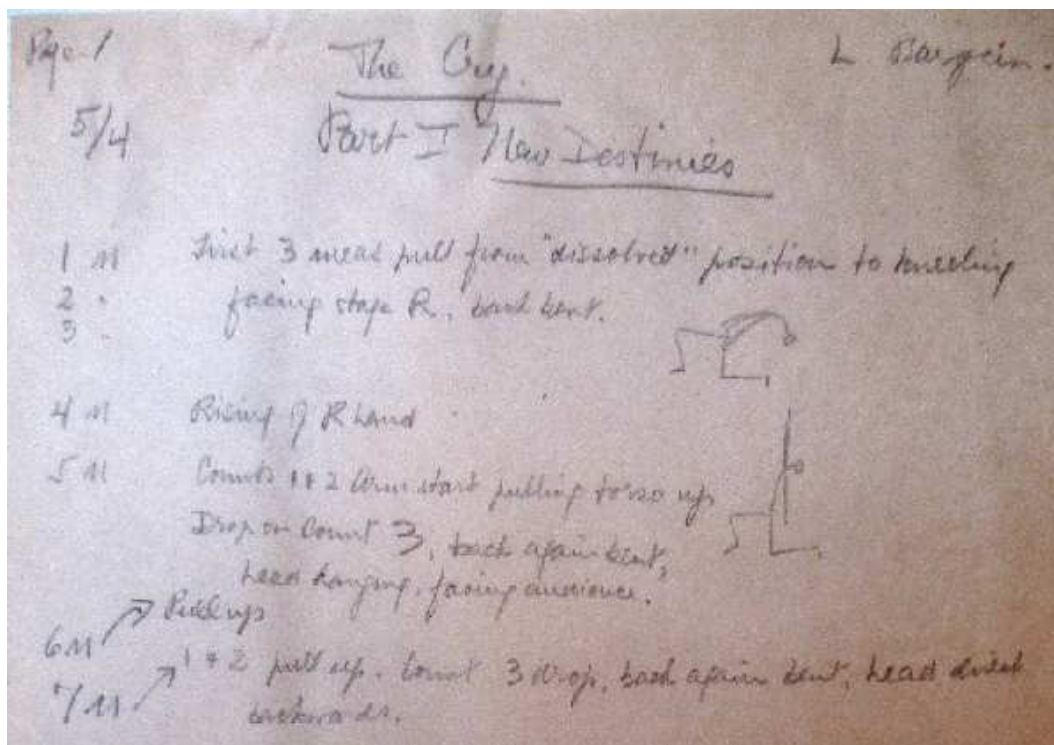 Page 1
The Cry.
L Bargein.
5/4
Part I New Destinies
1 M First 3 meas pull from "dissolved" position to kneeling
2 " facing stage R, back bent.
3 "
4 M Rising of R hand
5 M Counts 1 & 2 Arm start pulling torso up
Drop on Count 3, back again bent,
head hanging, facing audience.
6 M Pull up
7 M 1 & 2 pull up. Count 3 drop, back again bent, head
backwards.